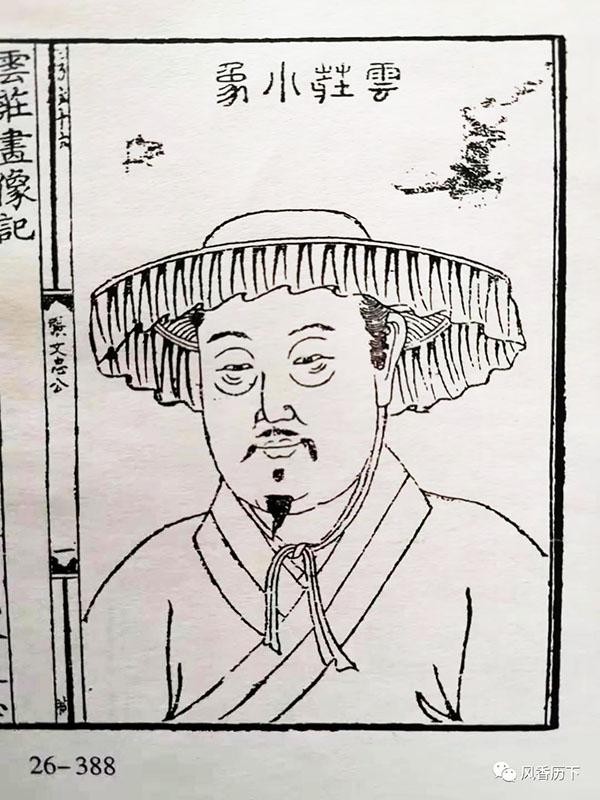 雲莊小象
張文忠公
一
雲莊畫像記
26-388
风香历下